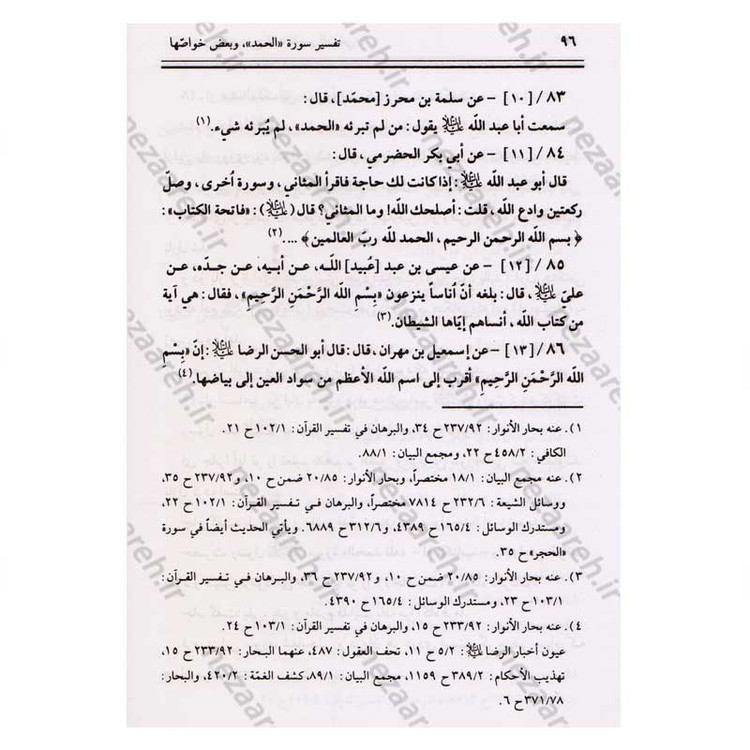 ٩٦ تفسير سورة «الحمد»، وبعض خواصّها
٨٣ / [١٠] - عن سلمة بن محرز [محمّد]، قال:
سمعت أبا عبد اللّه عليه السلام يقول: من لم تبرئه «الحمد»، لم يُبرئه شيء.(١)
٨٤ / [١١] - عن أبي بكر الحضرمي، قال:
قال أبو عبد اللّه عليه السلام: إذا كانت لك حاجة فاقرأ المثاني، وسورة أُخرى، وصلّ
ركعتين وادع اللّه، قلت: أصلحك اللّه! وما المثاني؟ قال (عليه السلام): «فاتحة الكتاب»:
﴿ بسم اللّه الرحمن الرحيم، الحمد للّه ربّ العالمين ﴾ ....(٢)
٨٥ / [١٢] - عن عيسى بن عبد [عُبيد] اللّه، عن أبيه، عن جدّه، عن
عليّ عليه السلام، قال: بلغه أنّ أُناساً ينزعون «بِسْمِ اللّه الرَّحْمَنِ الرَّحِيمِ»، فقال: هي آية
من كتاب اللّه، أنساهم إيّاها الشيطان.(٣)
٨٦ / [١٣] - عن إسمعيل بن مهران، قال: قال أبو الحسن الرضا عليه السلام: إنّ «بِسْمِ
اللّه الرَّحْمَنِ الرَّحِيمِ» أقرب إلى اسم اللّه الأعظم من سواد العين إلى بياضها.(٤)
١). عنه بحار الأنوار: ٢٣٧/٩٢ ح ٣٤، والبرهان في تفسير القرآن: ١٠٢/١ ح ٢١.
الكافي: ٤٥٨/٢ ح ٢٢، ومجمع البيان: ٨٨/١.
٢). عنه مجمع البيان: ١٨/١ مختصراً، وبحار الأنوار: ٢٠/٨٥ ضمن ح ١٠، و٢٣٧/٩٢ ح ٣٥،
ووسائل الشيعة: ٢٣٢/٦ ح ٧٨١٤ مختصراً، والبرهان في تفسير القرآن: ١٠٢/١ ح ٢٢،
ومستدرك الوسائل: ١٦٥/٤ ح ٤٣٨٩، و٣١٢/٦ ح ٦٨٨٩. ويأتي الحديث أيضاً في سورة
«الحجر» ح ٣٥.
٣). عنه بحار الأنوار: ٢٠/٨٥ ضمن ح ١٠، و٢٣٧/٩٢ ح ٣٦، والبرهان في تفسير القرآن:
١٠٣/١ ح ٢٣، ومستدرك الوسائل: ١٦٥/٤ ح ٤٣٩٠.
٤). عنه بحار الأنوار: ٢٣٣/٩٢ ح ١٥، والبرهان في تفسير القرآن: ١٠٣/١ ح ٢٤.
عيون أخبار الرضا عليه السلام: ٥/٢ ح ١١، تحف العقول: ٤٨٧، عنهما البحار: ٢٣٣/٩٢ ح ١٥،
تهذيب الأحكام: ٣٨٩/٢ ح ١١٥٩، مجمع البيان: ٨٩/١، كشف الغمّة: ٤٢٠/٢، والبحار:
٣٧١/٧٨ ح ٦.
nezaareh.ir